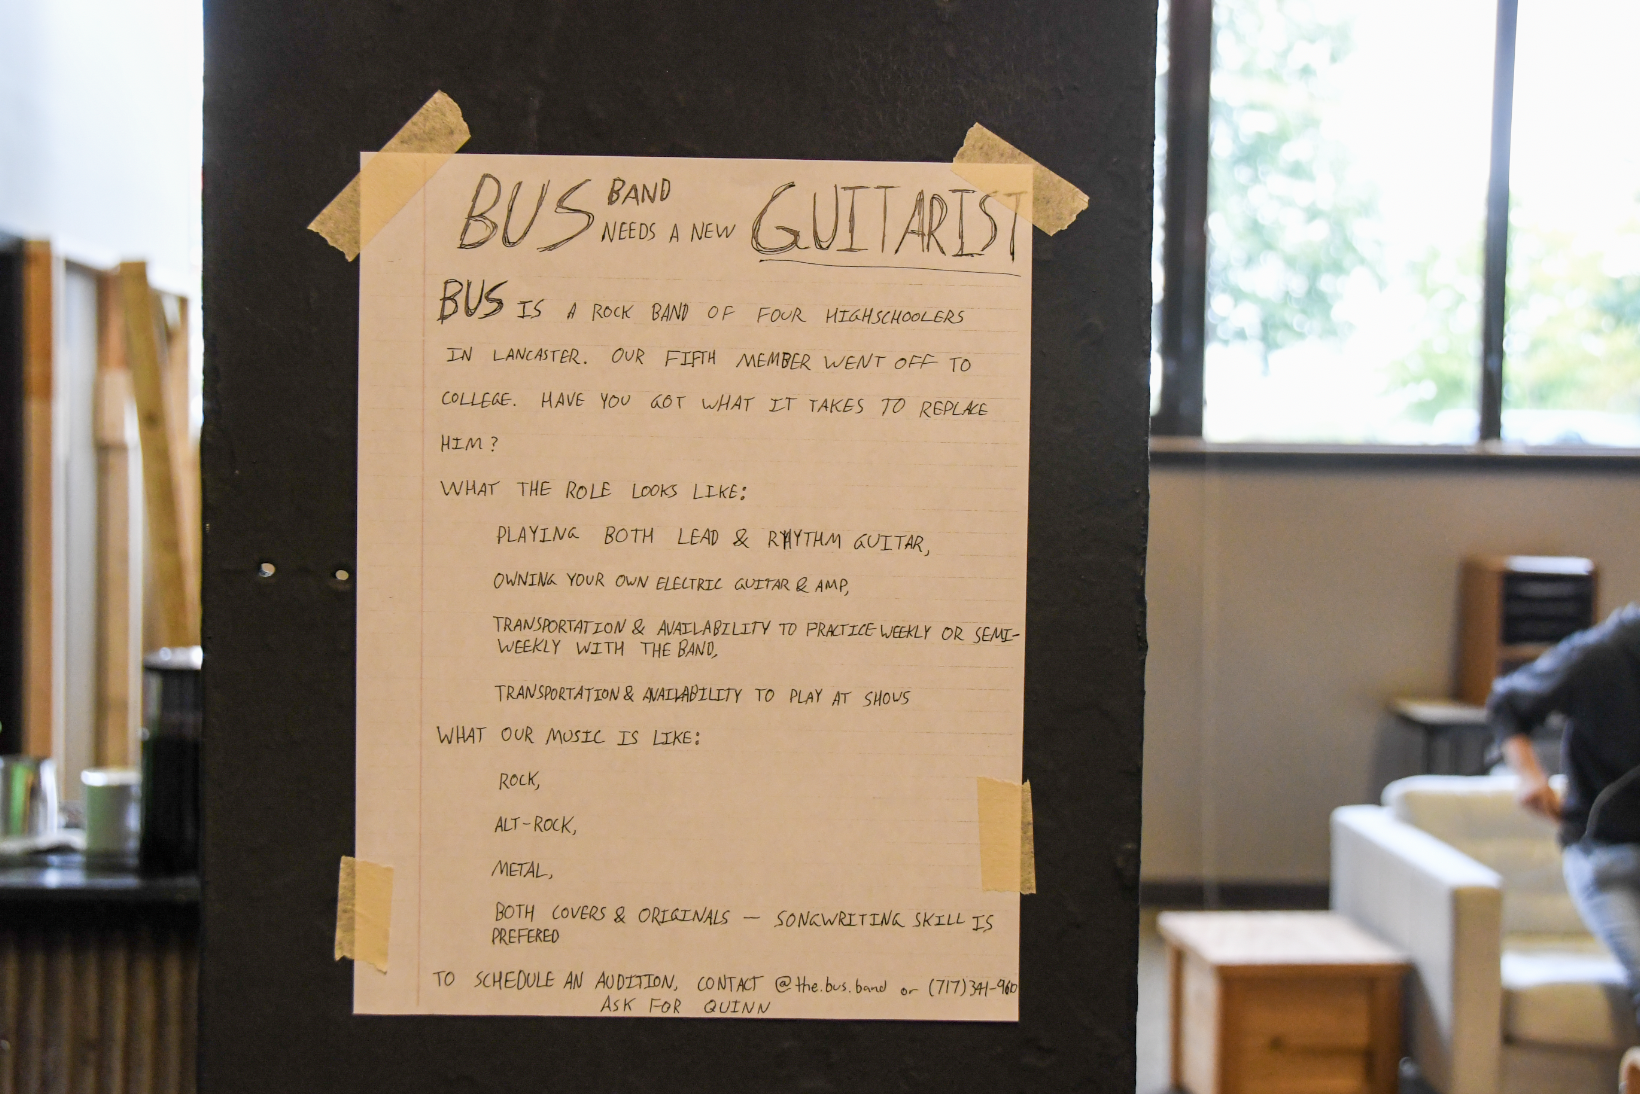 BUS BAND NEEDS A NEW GUITARIST
BUS IS A ROCK BAND OF FOUR HIGHSCHOOLERS
IN LANCASTER. OUR FIFTH MEMBER WENT OFF TO
COLLEGE. HAVE YOU GOT WHAT IT TAKES TO REPLACE
HIM?
WHAT THE ROLE LOOKS LIKE:
PLAYING BOTH LEAD & RHYTHM GUITAR,
OWNING YOUR OWN ELECTRIC GUITAR & AMP,
TRANSPORTATION & AVAILABILITY TO PRACTICE WEEKLY OR SEMI-
WEEKLY WITH THE BAND,
TRANSPORTATION & AVAILABILITY TO PLAY AT SHOWS
WHAT OUR MUSIC IS LIKE:
ROCK,
ALT-ROCK,
METAL,
BOTH COVERS & ORIGINALS — SONGWRITING SKILL IS
PREFERED
TO SCHEDULE AN AUDITION, CONTACT @the.bus.band or (717)341-
ASK FOR QUINN